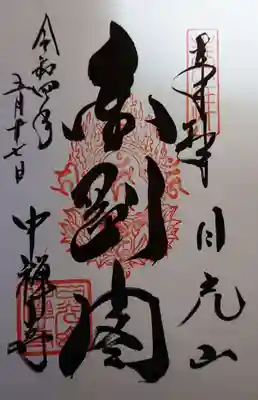 奉拝 日光山
金剛閣
中禪寺
令和四年
五月十七日